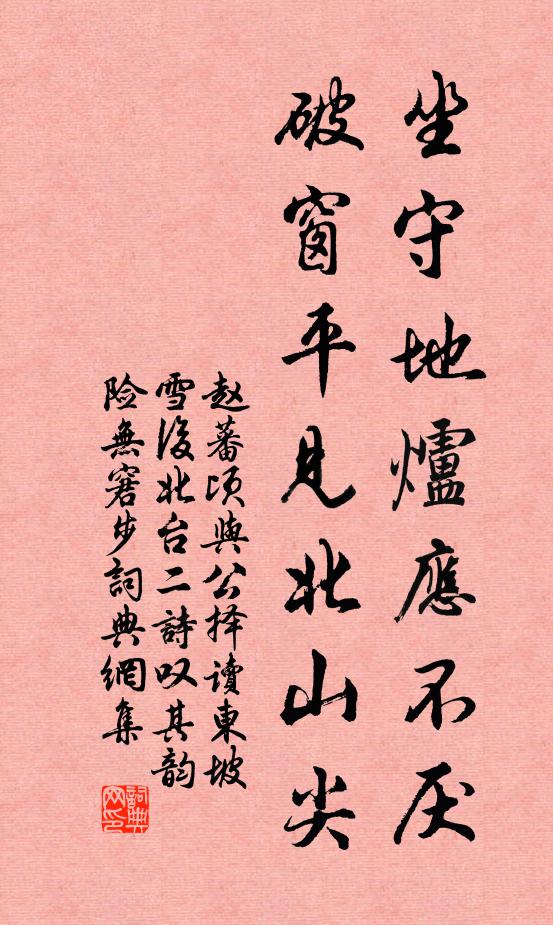 坐守地爐應不厌
破窗平見北山尖
赵蕃頃與公择讀東坡
雪後北台二詩叹其韵
险無窘步詞典網集
詞典網印